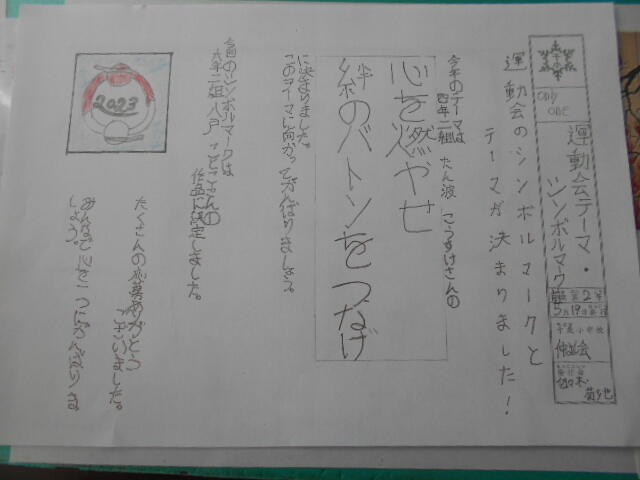 only
one
運動会テーマ・
シンボルマーク
第2号
5月19日
小学校
運動会のシンボルマークと
テーマが決まりました!
今年のテーマは
四年二組 たん波 こうすけさんの
心を燃やせ
絆のバトンをつなげ
に決まりました。
このテーマに向かってがんばりましょう。
今回のシンボルマークは
六年二組 八戸 ことこさんの
作品に決定しました。
2023
たくさんの応募ありがとう
ございました。
みんなで心を一つにがんばりま
しょう。